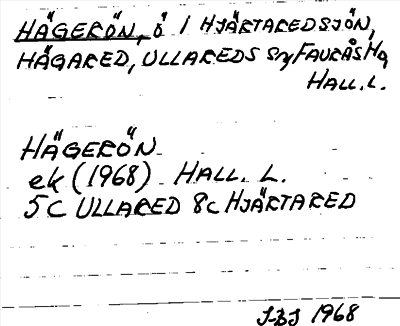 HÄGERÖN, Ö I HJÄRTAREDSJÖN,
HÄGARED, ULLAREDS SN, FAURÅS HD,
HALL. L.
HÄGERÖN
ek (1968) HALL. L.
5C ULLARED 8c HJÄRTARED
J-BJ 1968